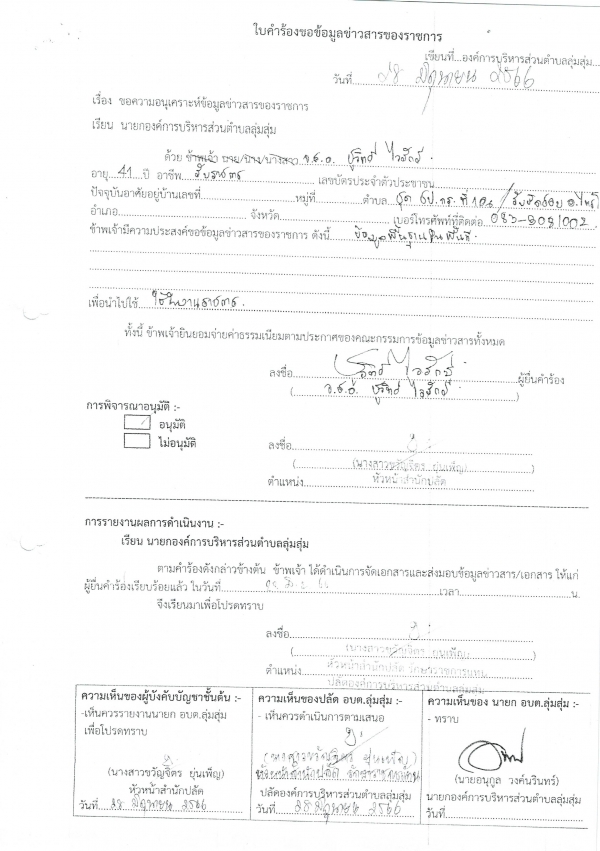 ใบคำร้องขอข้อมูลข่าวสารของราชการ
เขียนที่...องค์การบริหารส่วนตำบลลุ่มสุ่ม...
วันที่ 28 มิถุนายน 2566
เรื่อง ขอความอนุเคราะห์ข้อมูลข่าวสารของราชการ
เรียน นายกองค์การบริหารส่วนตำบลลุ่มสุ่ม
ด้วย ข้าพเจ้า นาย/นาง/นางสาว จ.ส.อ. ชูวิทย์
อายุ 41 ปี อาชีพ รับราชการ เลขบัตรประจำตัวประชาชน
ปัจจุบันอาศัยอยู่บ้านเลขที่ หมู่ที่ ตำบล ชุด
อำเภอ จังหวัด เบอร์โทรศัพท์ที่ติดต่อ
ข้าพเจ้ามีความประสงค์ขอข้อมูลข่าวสารของราชการ ดังนี้ ข้อมูลพื้นฐานในพื้นที่
เพื่อนำไปใช้ ใช้ในงานราชการ
ทั้งนี้ ข้าพเจ้ายินยอมจ่ายค่าธรรมเนียมตามประกาศของคณะกรรมการข้อมูลข่าวสารทั้งหมด
ลงชื่อ ผู้ยื่นคำร้อง
( จ.ส.อ. ชูวิทย์ )
การพิจารณาอนุมัติ :-
อนุมัติ
ไม่อนุมัติ
ลงชื่อ
(นางสาวขวัญจิตร ยุ่นเพ็ญ)
ตำแหน่ง หัวหน้าสำนักปลัด
การรายงานผลการดำเนินงาน :-
เรียน นายกองค์การบริหารส่วนตำบลลุ่มสุ่ม
ตามคำร้องดังกล่าวข้างต้น ข้าพเจ้า ได้ดำเนินการจัดเอกสารและส่งมอบข้อมูลข่าวสาร/เอกสาร ให้แก่
ผู้ยื่นคำร้องเรียบร้อยแล้ว ในวันที่ เวลา น.
จึงเรียนมาเพื่อโปรดทราบ
ลงชื่อ
(นางสาวขวัญจิตร ยุ่นเพ็ญ)
ตำแหน่ง หัวหน้าสำนักปลัด รักษาราชการแทน
ปลัดองค์การบริหารส่วนตำบลลุ่มสุ่ม
ความเห็นของผู้บังคับบัญชาชั้นต้น :-
-เห็นควรรายงานนายก อบต.ลุ่มสุ่ม
เพื่อโปรดทราบ
(นางสาวขวัญจิตร ยุ่นเพ็ญ)
หัวหน้าสำนักปลัด
วันที่ 28 มิถุนายน 2566
ความเห็นของปลัด อบต.ลุ่มสุ่ม :-
- เห็นควรดำเนินการตามเสนอ
(นางสาวขวัญจิตร ยุ่นเพ็ญ)
หัวหน้าสำนักปลัด รักษาราชการแทน
ปลัดองค์การบริหารส่วนตำบลลุ่มสุ่ม
วันที่ 28 มิถุนายน 2566
ความเห็นของ นายก อบต.ลุ่มสุ่ม :-
- ทราบ
(นายอนุกูล วงค์นรินทร์)
นายกองค์การบริหารส่วนตำบลลุ่มสุ่ม
วันที่